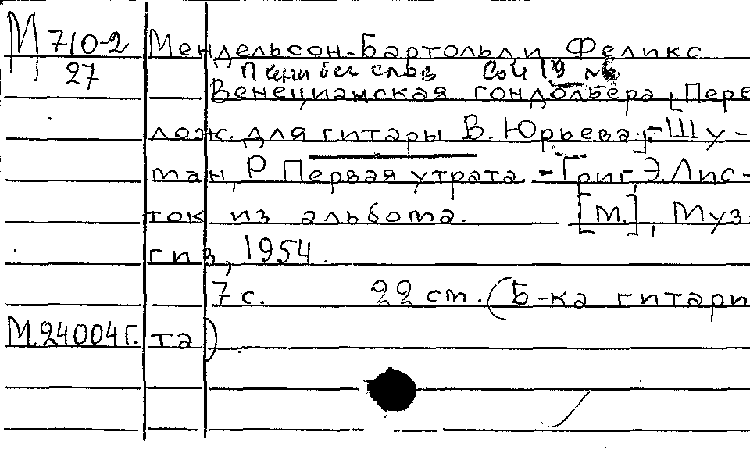 М 710-2 Мендельсон-Бартольди Феликс
27 Песни без слов Соч 19 № 6
Венецианская гондольера, Пере
лож. для гитары В. Юрьева; - Шу-
ман, Р. Первая утрата. - Григ, Э. Лис-
ток из альбома. [М.], Муз-
гиз, 1954.
7 с. 22 см. (Б-ка гитари
М.24004г. та)